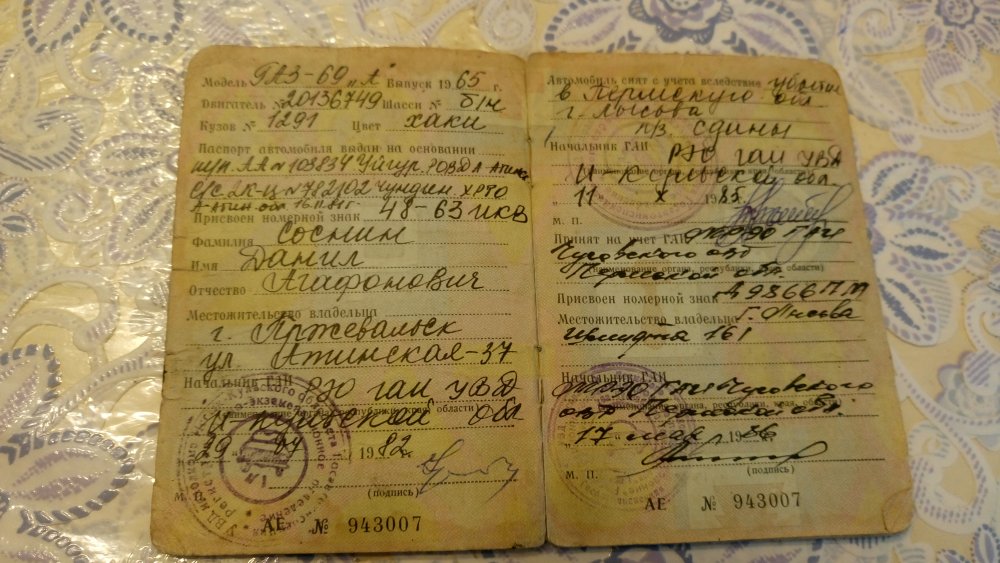 Модель ГАЗ-69 „А" Выпуск 1965 г.
Двигатель № 20136749 Шасси № б/н
Кузов № 1291 Цвет хаки
Паспорт автомобиля выдан на основании
АА № 103834 Уйгур. РОВД А-Атин.
С/С 2К-Ц № 782102
А-Атин. обл. 16.11.81г
Присвоен номерной знак 48-63 ИКВ
Фамилия Соснин
Имя Данил
Отчество Агафонович
Местожительство владельца
г. Пржевальск
ул. Атинская-37
Начальник ГАИ РЭО ГАИ УВД
И-Кульской обл
1982
(подпись)
М. П.
АЕ № 943007
Автомобиль снят с учета вследствие убытия
в Пермскую обл
г. Лысьва
Начальник ГАИ
РЭО ГАИ УВД
обл.
" 11 " X 1985
М. П.
Принят на учет ГАИ
Чусовского
(наименование органа, республики, края, области)
Пермской обл.
Присвоен номерной знак Д9866ПМ
Местожительство владельца г. Лысьва
161
Начальник ГАИ Чусовского
(наименование органа, республики, края, области)
" 17 " мая 1986
М. П.
(подпись)
АЕ № 943007